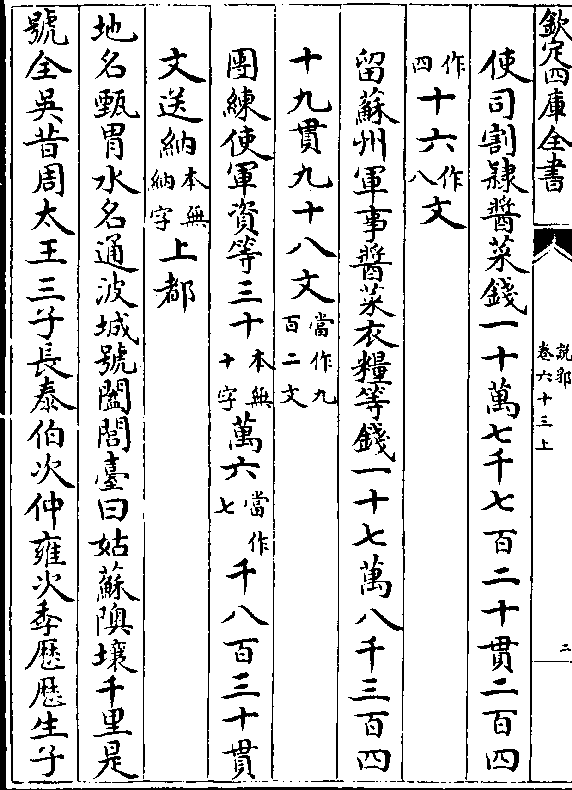 欽定四庫全書
說郛
卷六十三上
二
使司割隸醬菜錢一十萬七千七百二十貫二百四
作四十六作八文
留蘇州軍事醬菜衣糧等錢一十七萬八千三百四
十九貫九十八文當作九百二文
團練使軍資等三十本無十字萬六當作七千八百三十貫
文送納本無納字上都
地名甄胄水名通波城號闔閭臺曰姑蘇隩壤千里是
號全吳昔周太王三子長泰伯次仲雍次季歷歷生子